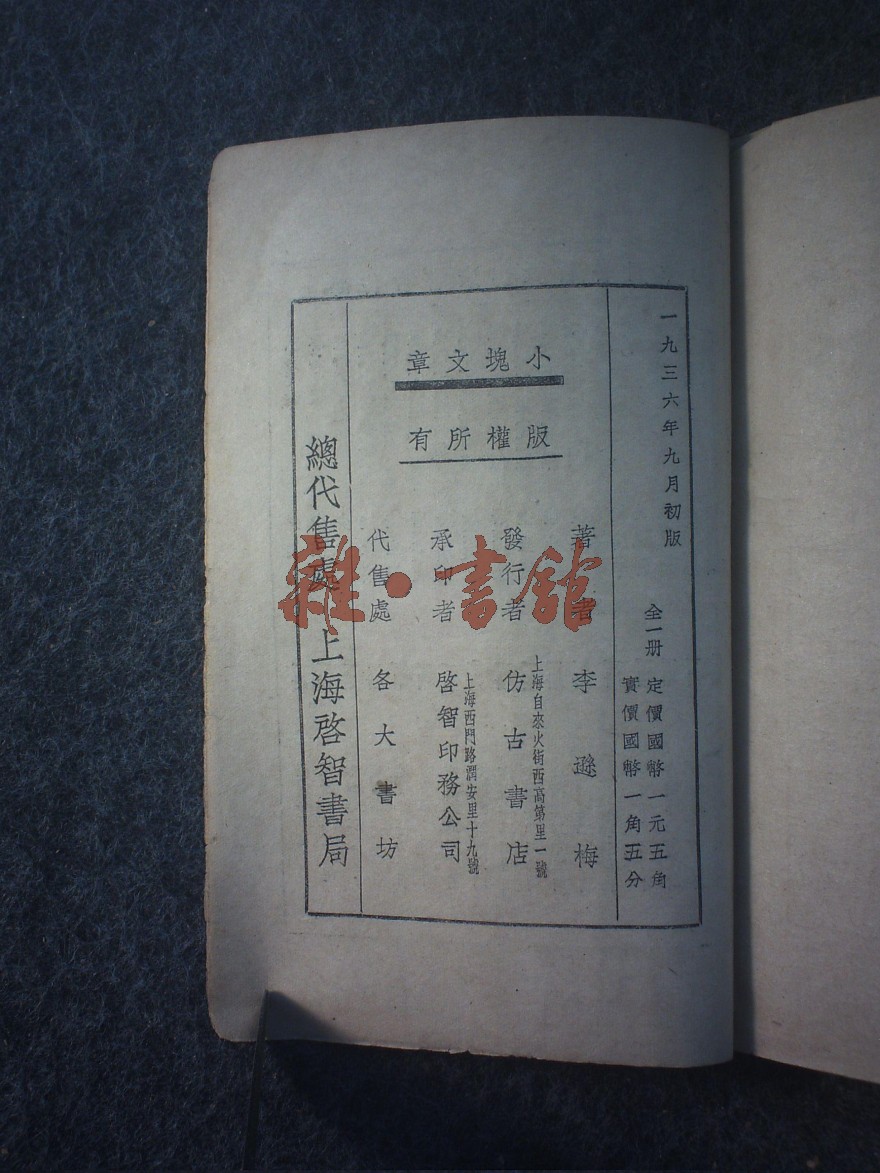 一九三六年九月初版
全一册
定價國幣一元五角
實價國幣一角五分
小塊文章
版權所有
著者 李遜梅
上海自來火街西高第里一號
發行者 仿古書店
上海西門路潤安里十九號
承印者 啓智印務公司
代售處 各大書坊
總代售處 上海啓智書局
雜·書館